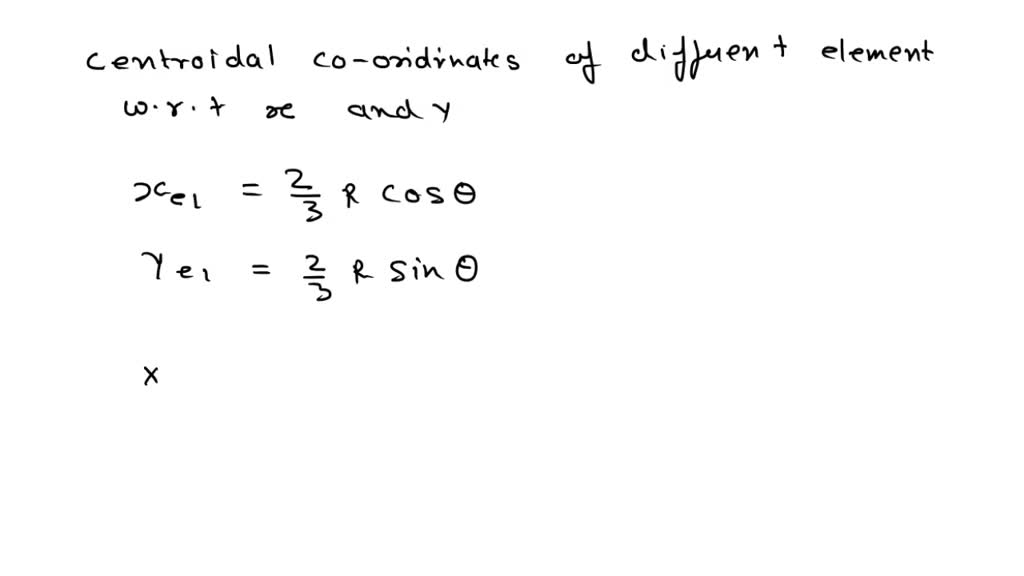 centroidal co-ordinates of different element
w.r.t x and y
x_el = 2/3 R cos θ
y_el = 2/3 R sin θ
x